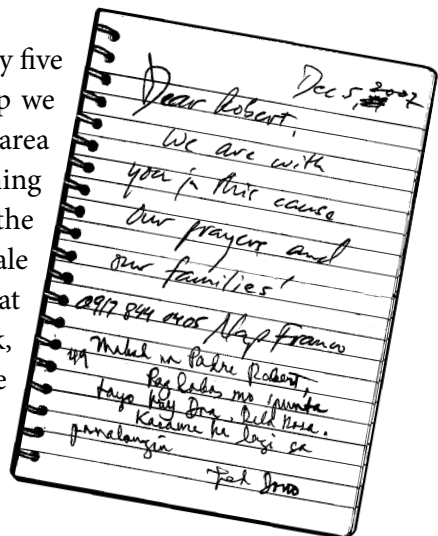 y five
p we
area
ing
the
ale
at
k,
e
Dec 5, 2007
Dear Robert,
We are with
you in this cause
Our prayers and
our families'
0917 844 0405 Nap Franco
Mahal na Padre Robert,
Pag labas mo punta
tayo kay Dra. Dela Rosa.
Kasama ka lagi sa
panalangin